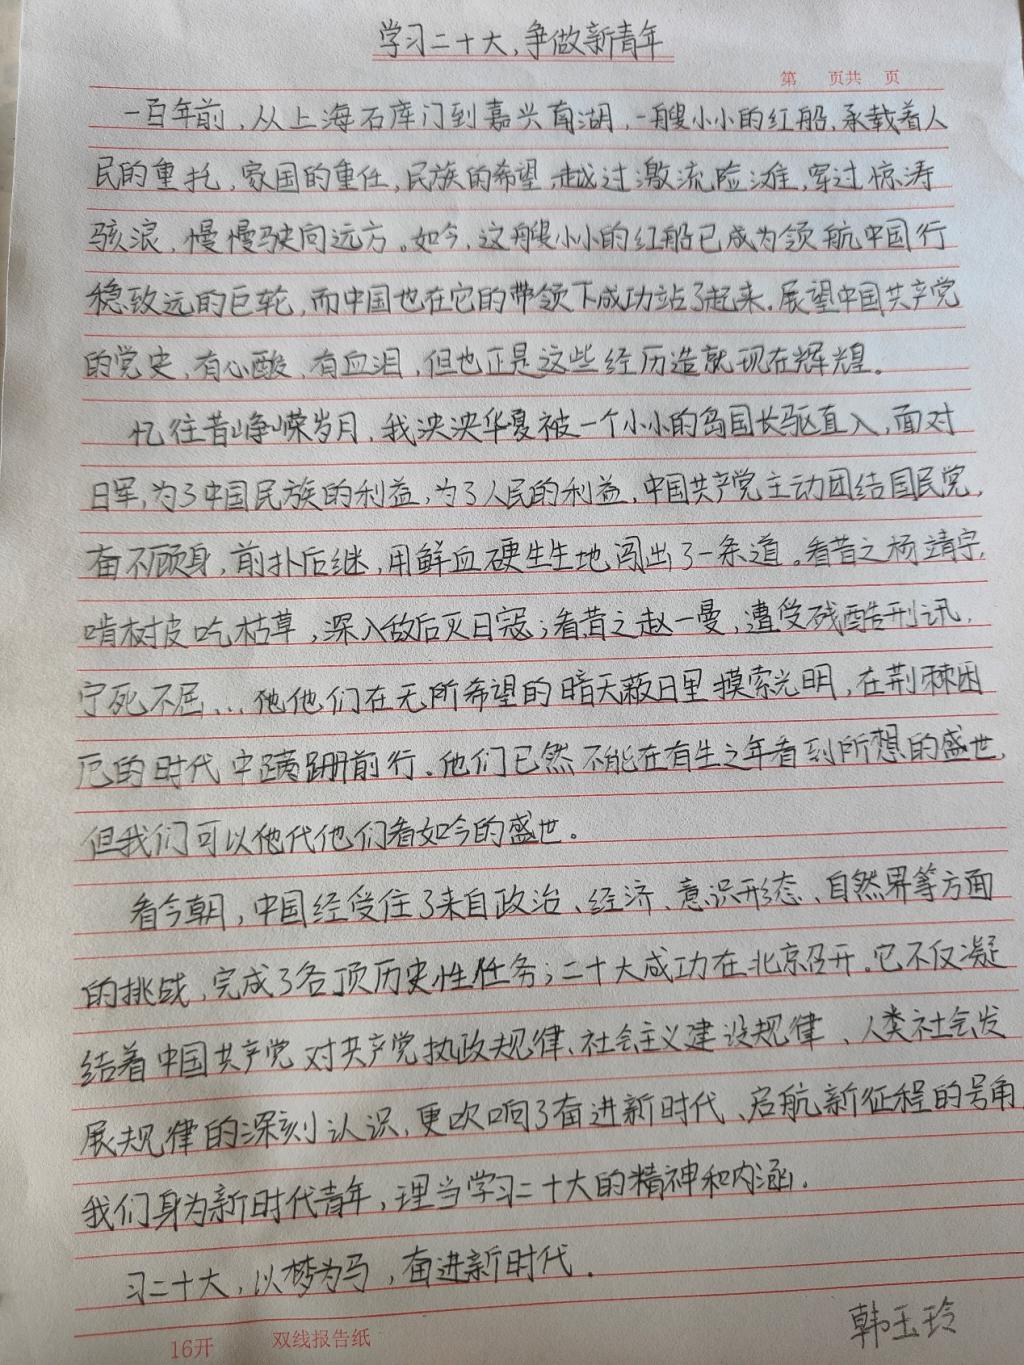 学习二十大，争做新青年
第 页共 页
一百年前，从上海石库门到嘉兴南湖，一艘小小的红船，承载着人
民的重托，家国的重任，民族的希望，越过激流险滩，穿过惊涛
骇浪，慢慢驶向远方。如今，这艘小小的红船已成为领航中国行
稳致远的巨轮，而中国也在它的带领下成功站了起来。展望中国共产党
的党史，有心酸，有血泪，但也正是这些经历造就现在辉煌。
忆往昔峥嵘岁月，我泱泱华夏被一个小小的岛国长驱直入，面对
日军，为了中国民族的利益，为了人民的利益，中国共产党主动团结国民党，
奋不顾身，前扑后继，用鲜血硬生生地闯出了一条道。看昔之杨靖宇，
啃树皮吃枯草，深入敌后灭日寇；看昔之赵一曼，遭受残酷刑讯，
宁死不屈...他他们在无所希望的暗天蔽日里摸索光明，在荆棘困
厄的时代中蹒跚前行。他们已然不能在有生之年看到所想的盛世，
但我们可以他代他们看如今的盛世。
看今朝，中国经受住了来自政治、经济、意识形态、自然界等方面
的挑战，完成了各项历史性任务；二十大成功在北京召开。它不仅凝
结着中国共产党对共产党执政规律、社会主义建设规律、人类社会发
展规律的深刻认识，更吹响了奋进新时代、启航新征程的号角，
我们身为新时代青年，理当学习二十大的精神和内涵。
习二十大，以梦为马，奋进新时代。
韩玉玲
16开 双线报告纸